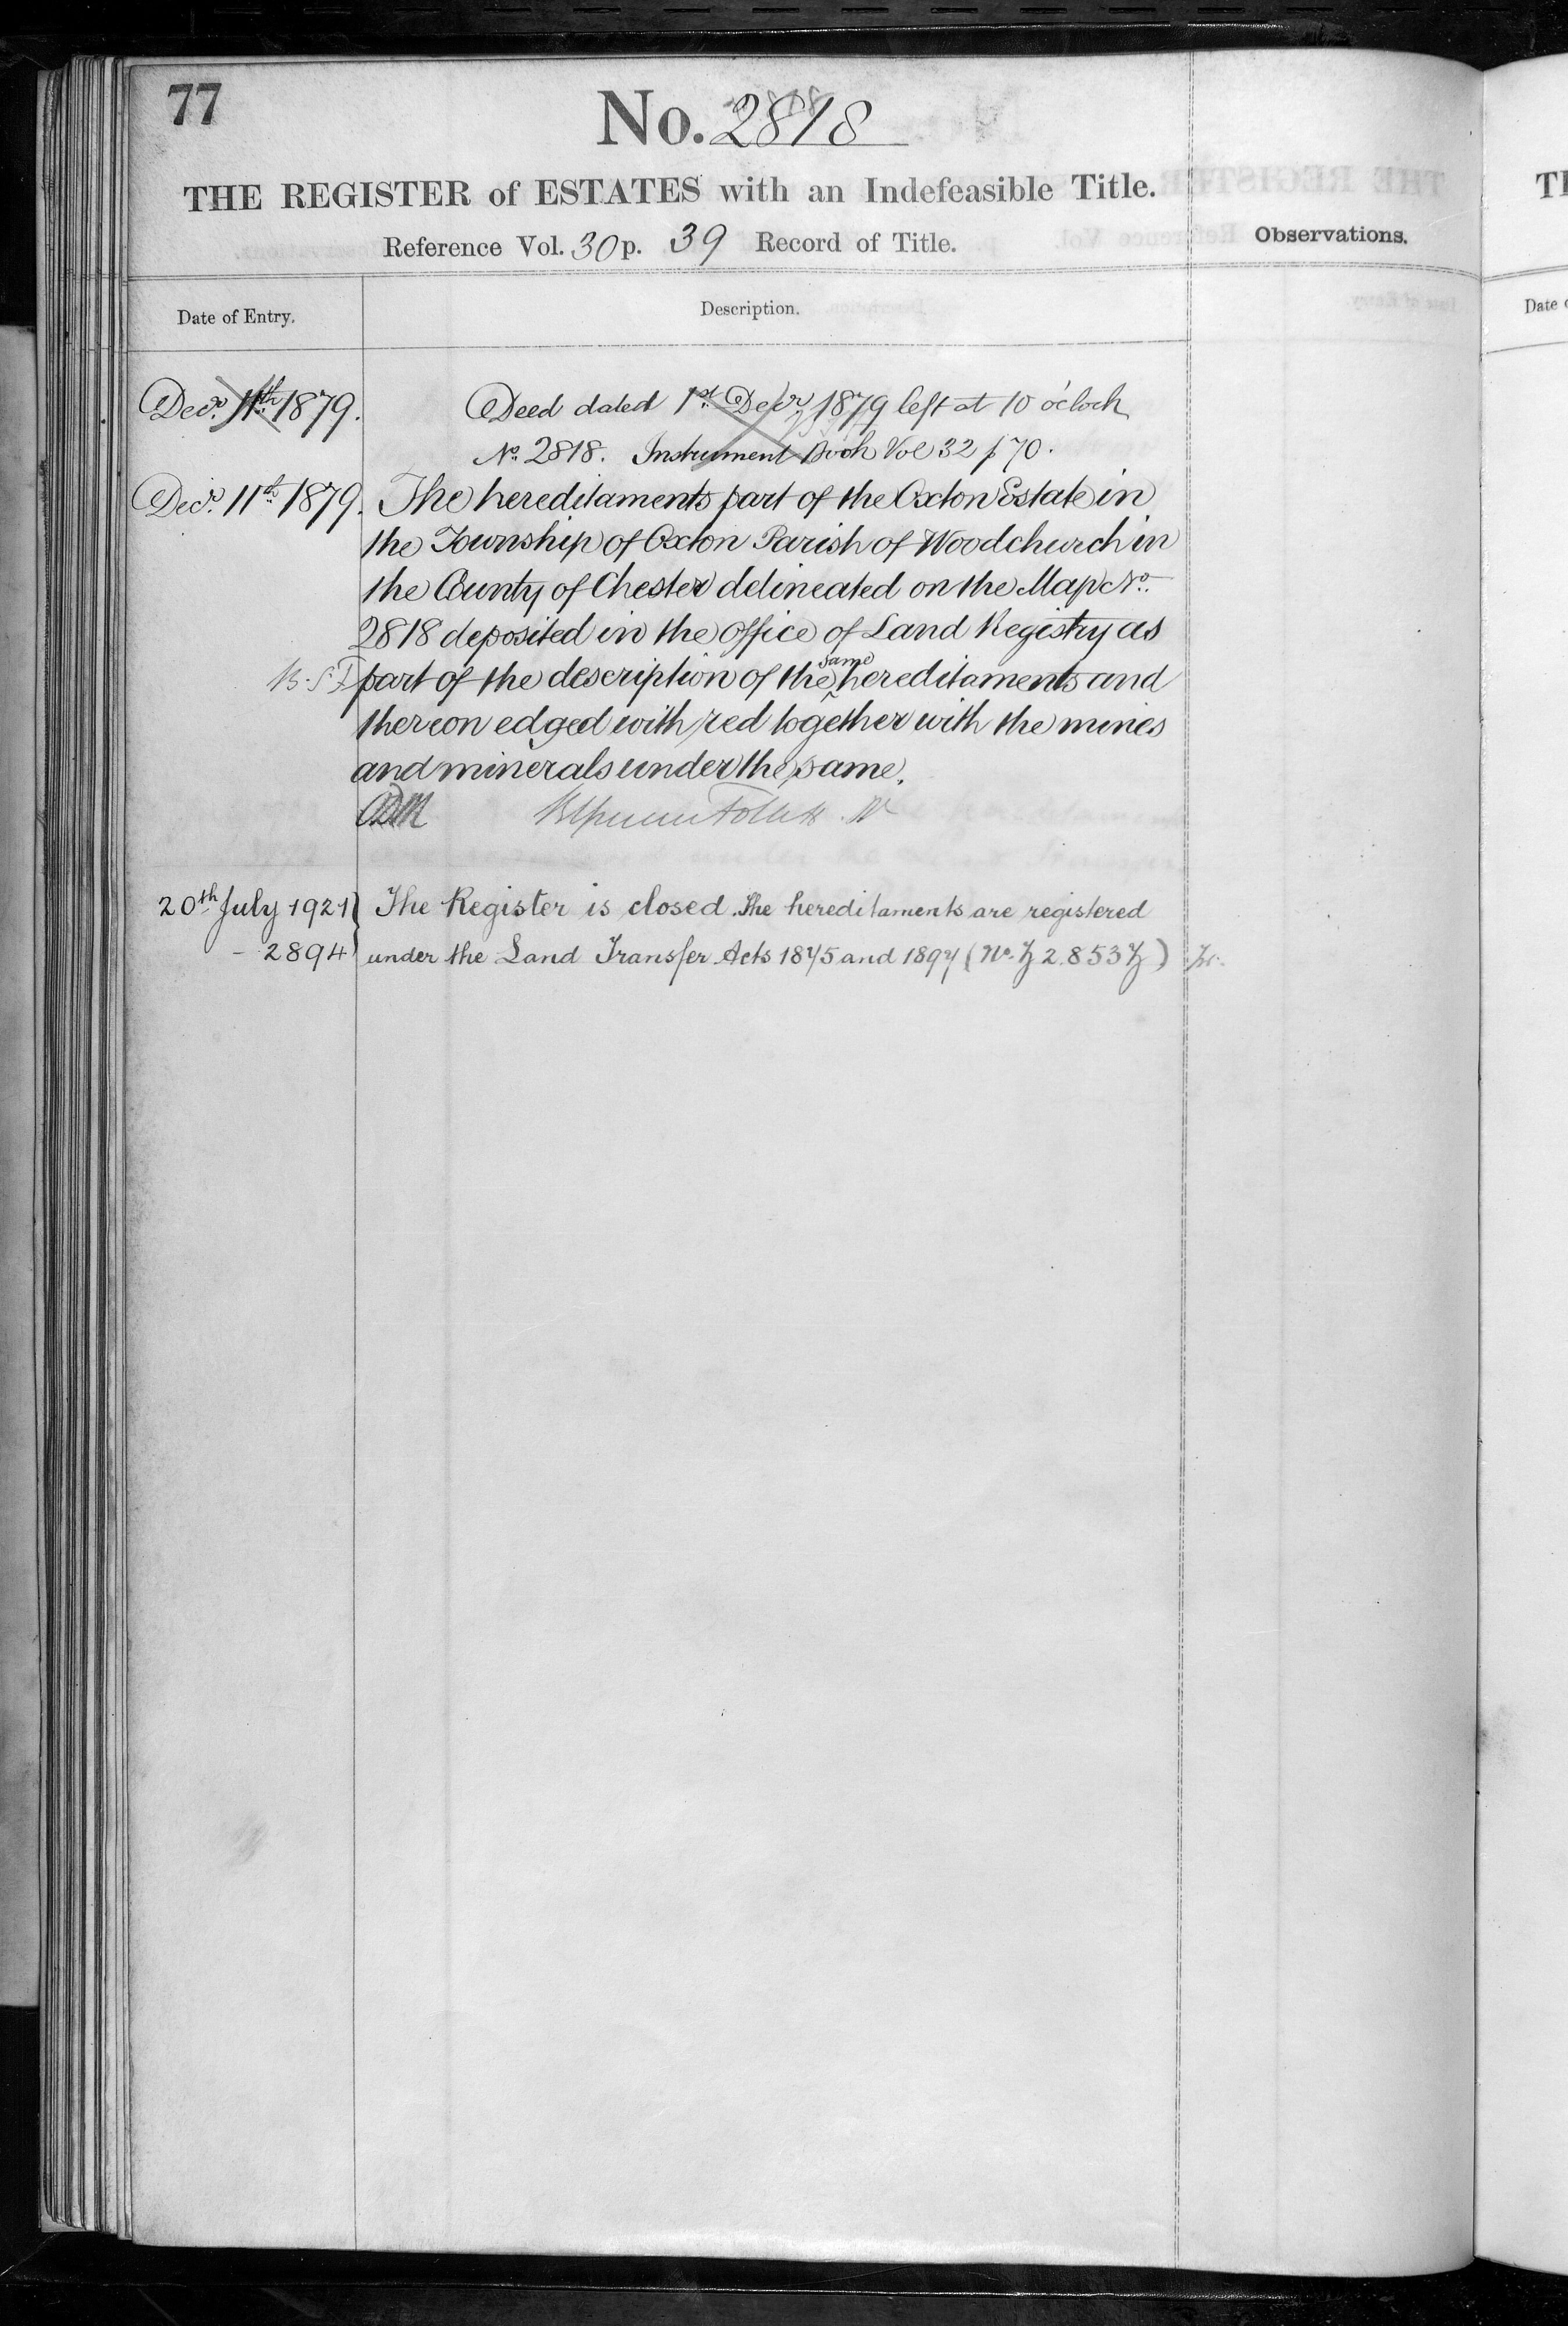 77
No. 2818
THE REGISTER of ESTATES with an Indefeasible Title.
Reference Vol. 30 p. 39 Record of Title.
Observations.
Date of Entry.
Description.
Decr. 11th 1879.
Deed dated 1st Decr 1879 left at 10 o'clock
No. 2818. Instrument Book Vol 32 p 70.
Decr. 11th 1879.
The hereditaments part of the Oxton Estate in
the Township of Oxton Parish of Woodchurch in
the County of Chester delineated on the Map No.
2818 deposited in the office of Land Registry as
B.S.F part of the description of the same hereditaments and
thereon edged with red together with the mines
and minerals under the same.
20th July 1921
- 2894
The Register is closed. The hereditaments are registered
under the Land Transfer Acts 1875 and 1897